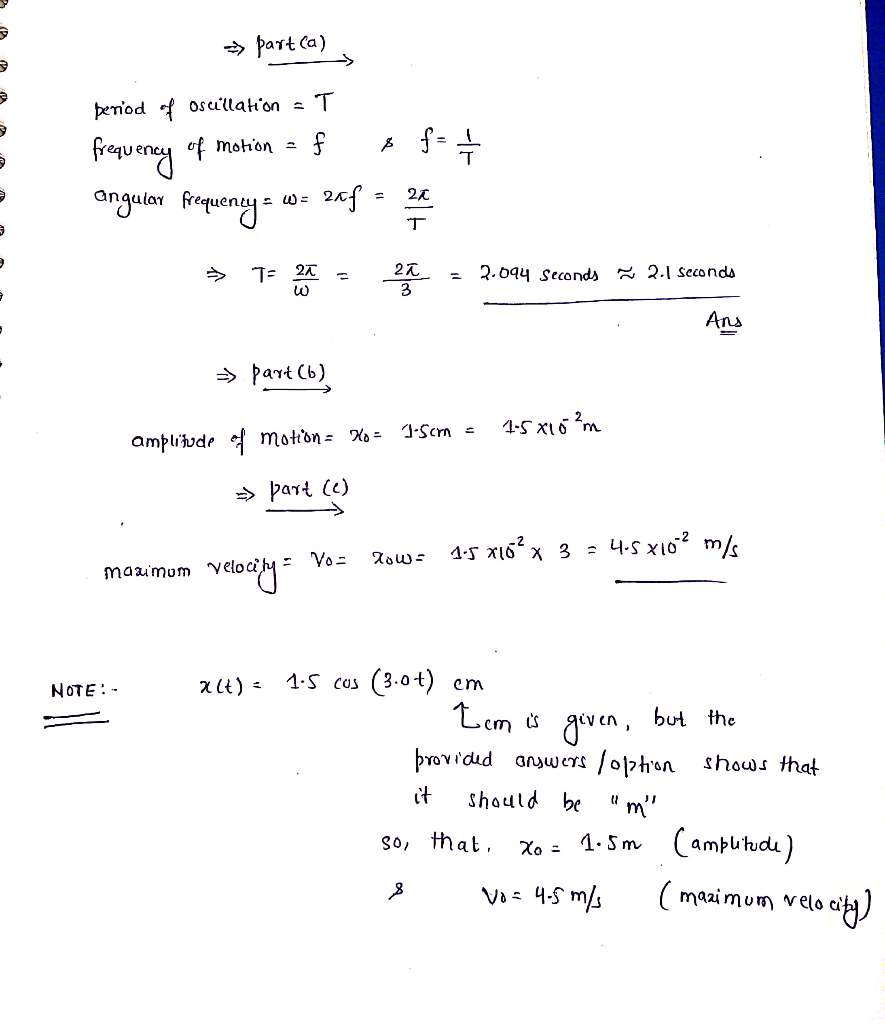 ⇒ part (a)
period of oscillation = T
frequency of motion = f & f = 1/T
angular frequency = ω = 2πf = 2π/T
⇒ T = 2π/ω = 2π/3 = 2.094 seconds ≈ 2.1 seconds
Ans
⇒ part (b)
amplitude of motion = x₀ = 1.5cm = 1.5 x10⁻²m
⇒ part (c)
maximum velocity = V₀ = x₀ω = 1.5 x10⁻² x 3 = 4.5 x10⁻² m/s
NOTE:- x(t) = 1.5 cos (3.0t) cm
↑ cm is given, but the
provided answers/option shows that
it should be "m"
so, that, x₀ = 1.5m (amplitude)
& V₀ = 4.5 m/s (maximum velocity)